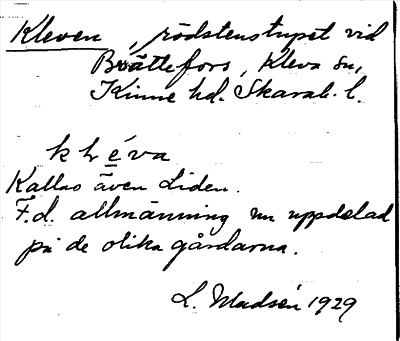 Kleven, rödstenstupet vid
Brättefors, Kleva sn,
Kinne hd. Skarab. l.
k l é va
Kallas även Liden.
F.d. allmänning nu uppdelad
på de olika gårdarna.
L. Madsén 1929